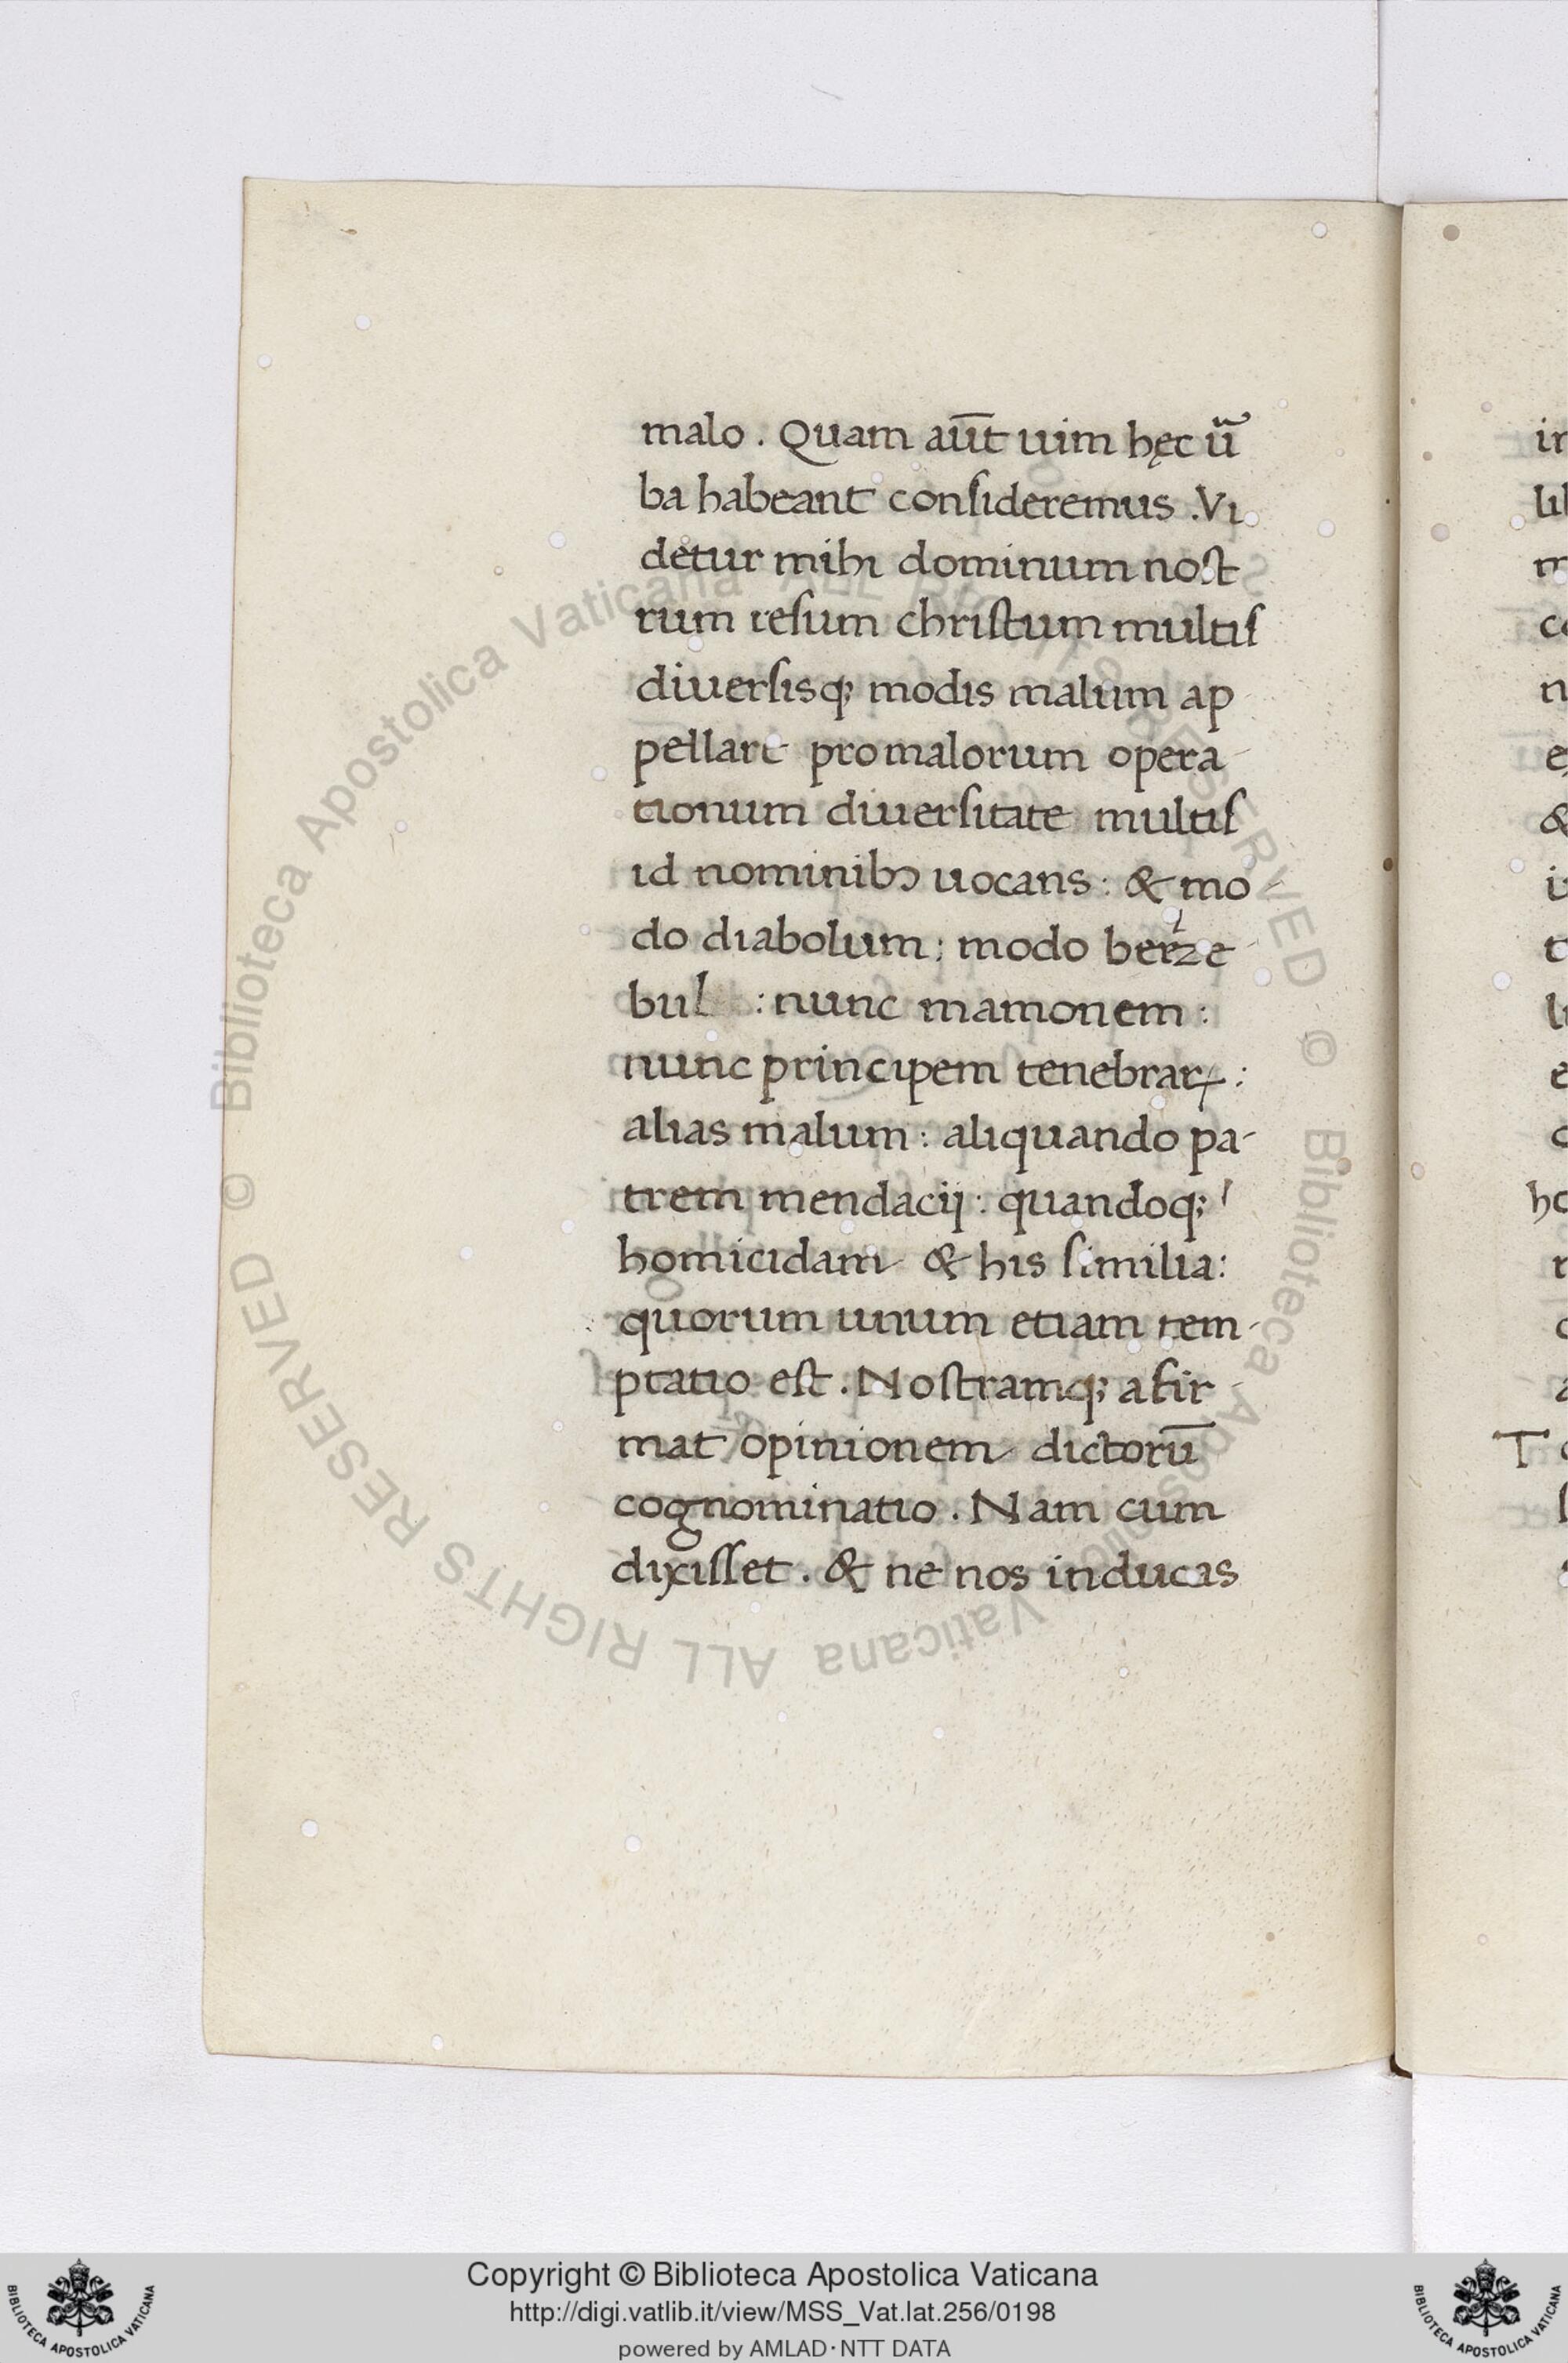 malo . Quam aut̅ uim hęc ũ
ba habeant consideremus . Vi
detur mihi dominum nost
rum iesum christum multis
diuersisq; modis malum ap
pellare pro malorum opera-
tionum diuersitate multis
id nominibꝯ uocans : & mo-
do diabolum : modo beeze
bul : nunc mamonem :
nunc principem tenebraꝝ :
alias malum : aliquando pa-
trem mendacij : quandoq;
homicidam & his similia :
quorum unum etiam tem-
ptatio est . Nostramq; afir-
mat opinionem dictorū
cognominatio . Nam cum
dixisset . & ne nos inducas
Copyright © Biblioteca Apostolica Vaticana
http://digi.vatlib.it/view/MSS_Vat.lat.256/0198
powered by AMLAD·NTT DATA
BIBLIOTECA APOSTOLICA VATICANA
BIBLIOTECA APOSTOLICA VATICANA
© Biblioteca Apostolica Vaticana ALL RIGHTS RESERVED
© Biblioteca Apostolica Vaticana ALL RIGHTS RESERVED